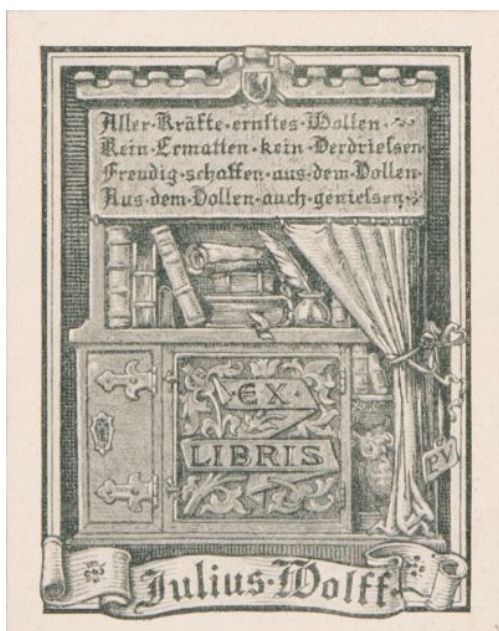 Aller·Kräfte·ernstes·Wollen·
Kein·Ermatten·kein·Verdrießen
Freudig·schaffen·aus·dem·Vollen·
Aus·dem·Vollen·auch·genießen·
·EX·
LIBRIS
PV
Julius·Wolff·